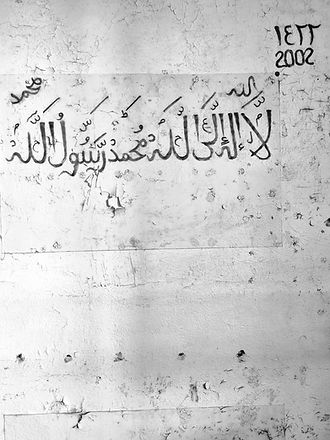 ١٤٢٢
2002
الله
محمد
لا إله إلا الله محمد رسول الله